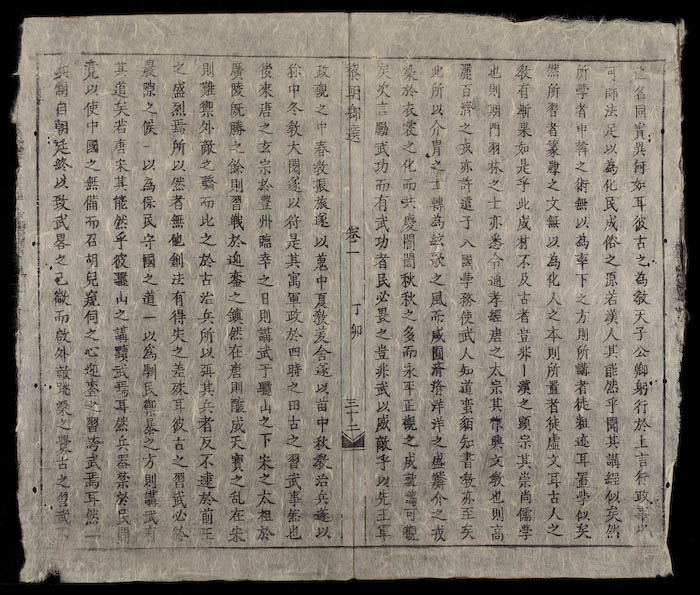 他名同實異何如耳彼古之為教天子公卿躬行於上言行政事皆
可師法足以為化民成俗之原若漢人其能然乎聞其講經似矣然
所學者申韓之術無以為率下之方則所講者徒粗迹耳置學似矣
然所習者篆隸之文無以為化人之本則所置者徒虛文耳古人之
教有漸果如是乎此成材不及古者豈非漢之顯宗其崇尚儒學
也則期門羽林之士亦悉令通孝經唐之太宗其作興文教也則高
麗百濟之夷亦許遣子入國學務使武人知道蠻貊知書教亦至矣
此所以介胄之士轉為絃歌之風而咸囿濟濟洋洋之盛鱗介之戎
染於衣裳之化而共慶誾誾秩秩之多而永平正觀之成就蕩可觀
矣次言勵武功而有武功者民必畏之豈非武以威敵乎以先王軍
黎朝鄉選 卷二 丁卯 三十二
政觀之中春教振旅遂以蒐中夏教茇舍遂以苗中秋教治兵遂以
狝中冬教大閱遂以狩是其寓軍政於四時之田古之習武事然也
後來唐之玄宗於豊州臨幸之日則講武于驪山之下宋之太祖於
廣陵既勝之餘則習戰於迎鑾之鎮然在唐則釀成天寶之乱在宋
則難禦外敵之驕而此之於古治兵所以弭其兵者反不逮於前王
之盛烈焉所以然者無他創法有得失之差殊耳彼古之習武必於
農隙之候一以為保民守國之道一以為馴民禦暴之方則講武
其道矣若唐宋其能然乎彼驪山之講黷武焉耳然兵器禁於民間
竟以使中國之無備而召胡兒窺伺之心迎鑾之習誇武焉耳然一
兵制自朝廷終以致武畧之已敝而啟外敵跳梁之釁古之習武